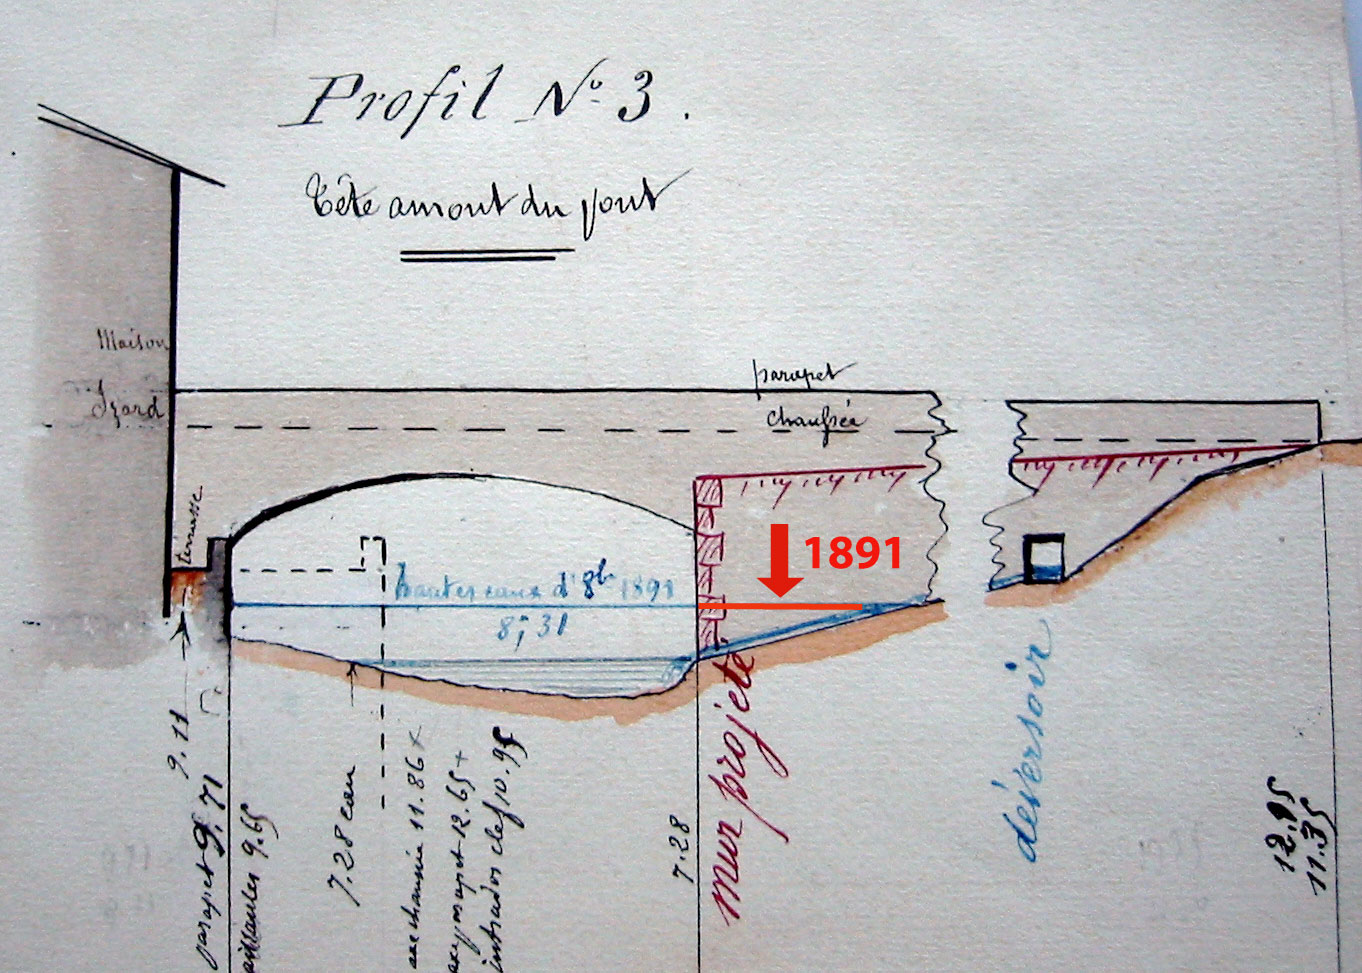 Profil Nº 3.
Tête amont du pont
Maison
Izard
parapet
chaussée
terrasse
1891
hautes eaux d' 8b 1891
8,31
9.11
parapet 9.71
9.65
7.28 eau
axe chaussée 11.86
axe parapet 12.65
intrados clef 10.95
7.28
mur projeté
déversoir
12.95
11.35